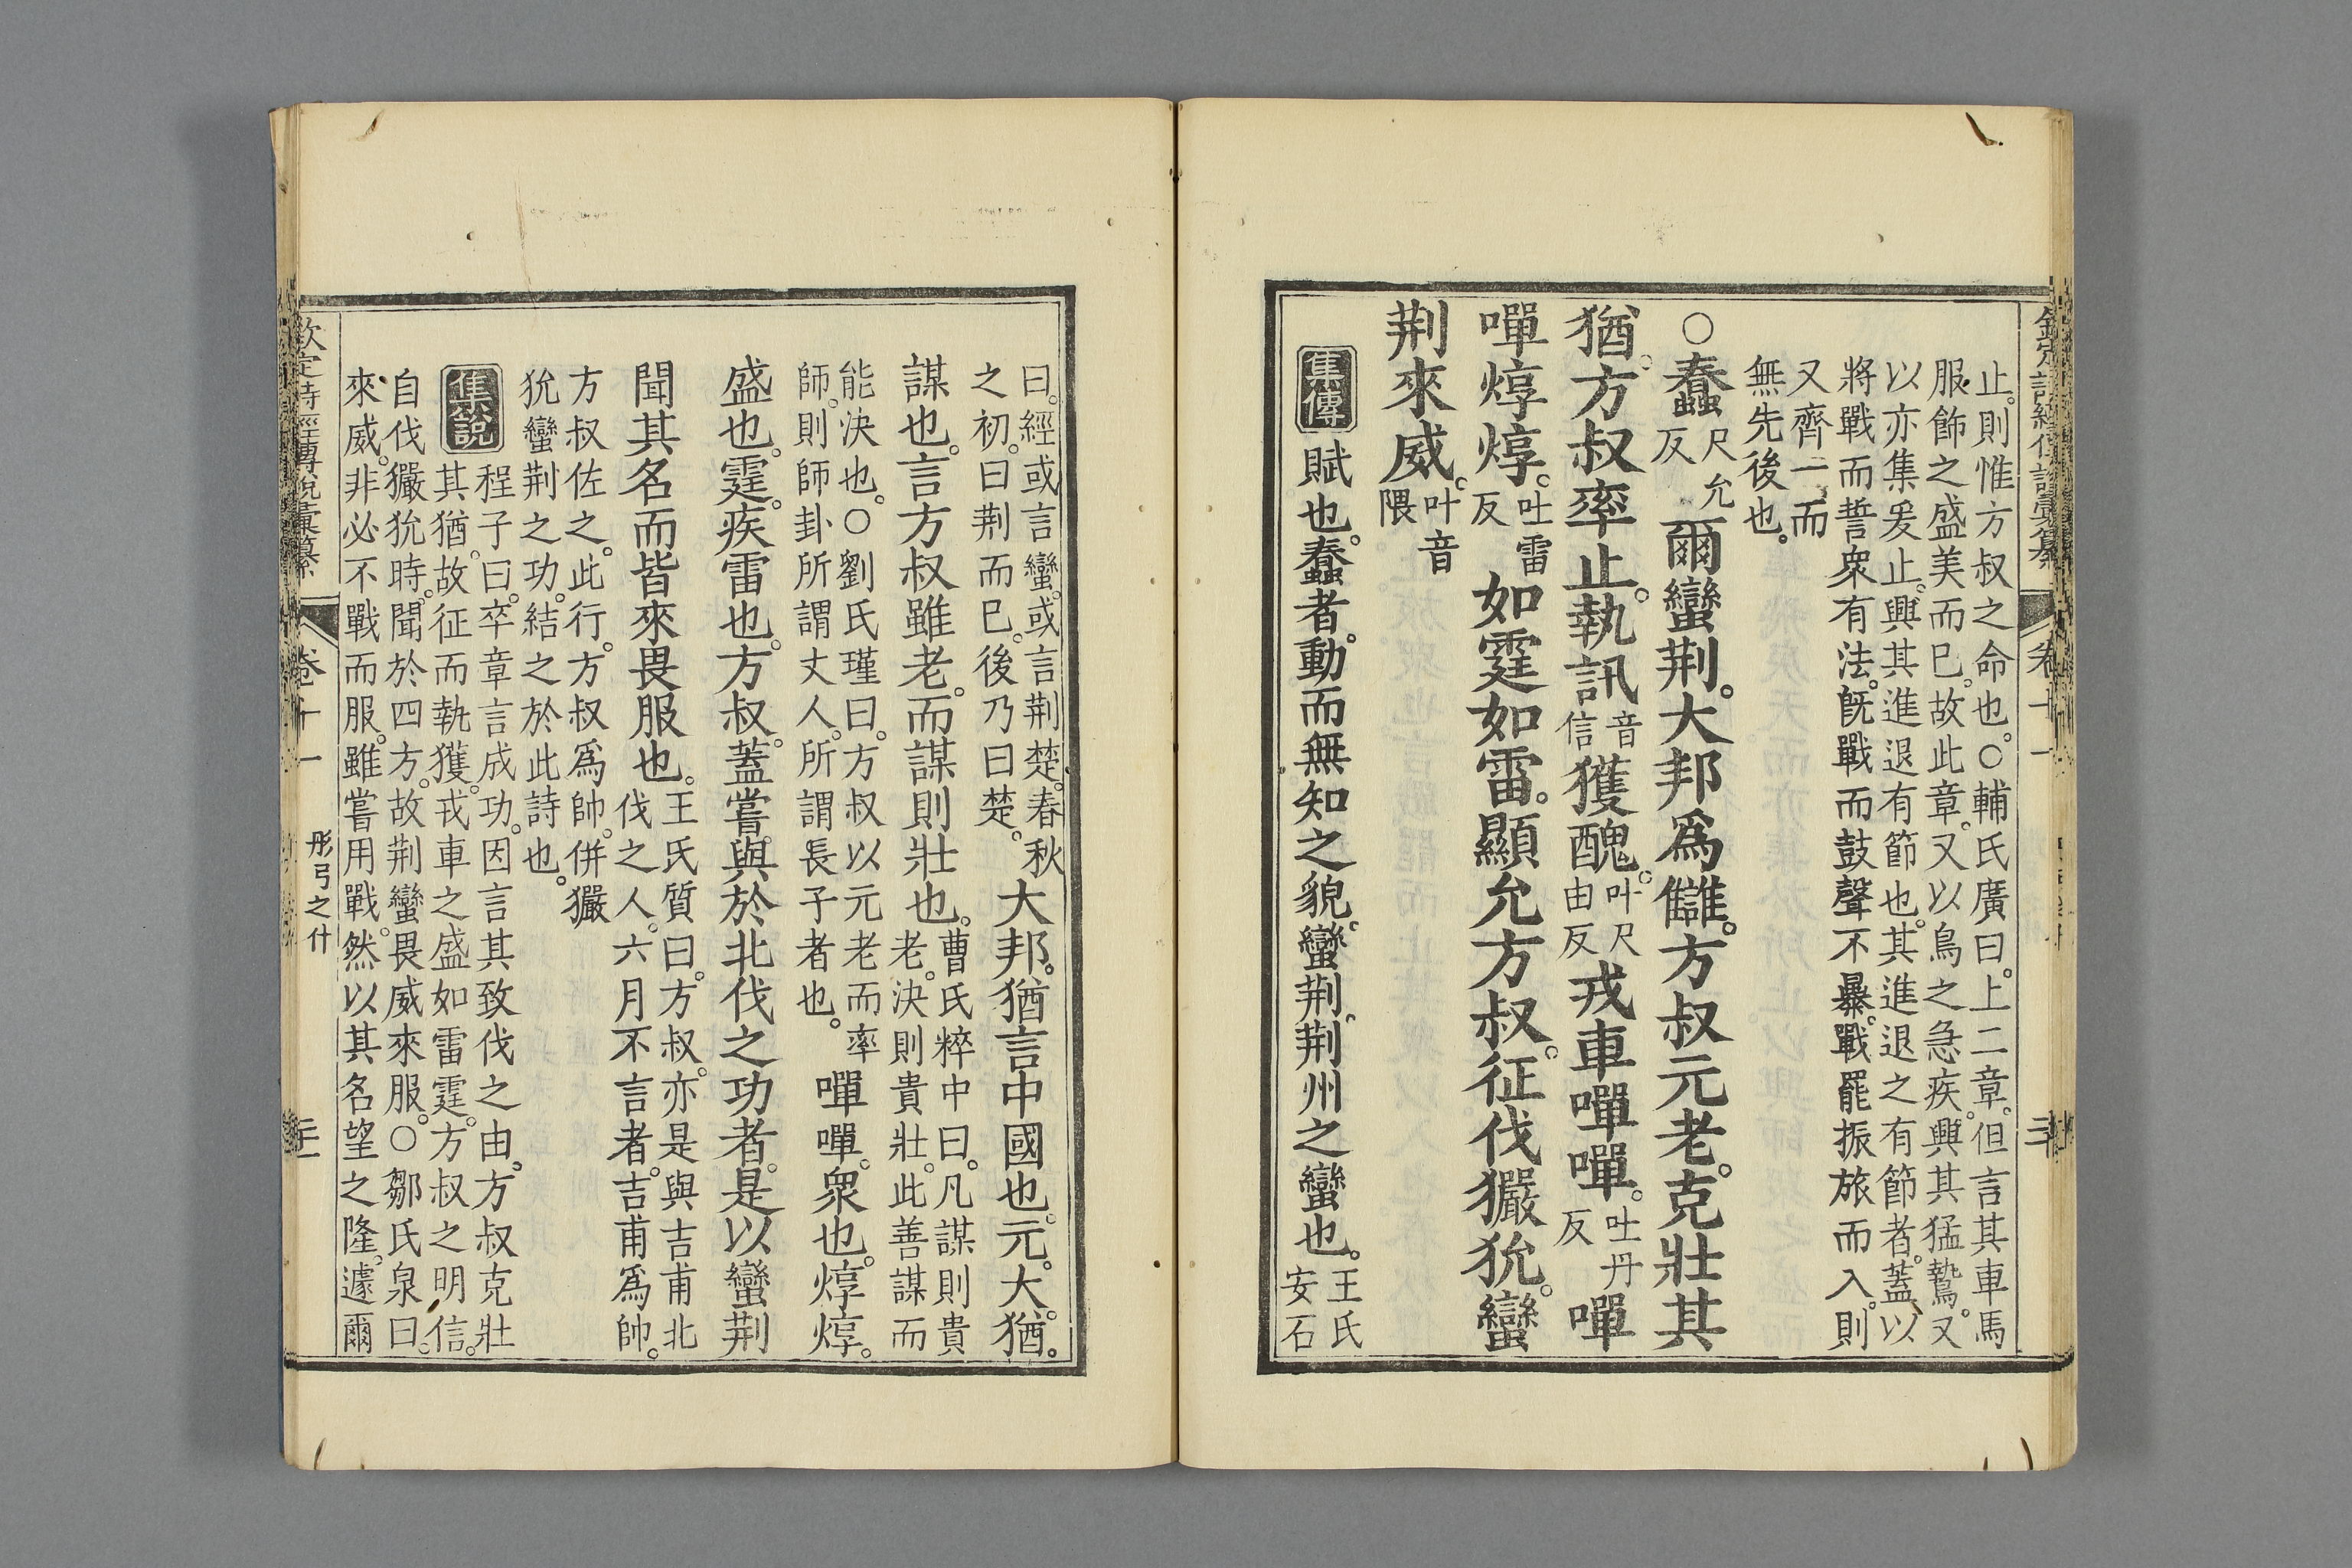 欽定詩經傳說彙纂 卷十一
止則惟方叔之命也○輔氏廣曰上二章但言其車馬
服飾之盛美而巳故此章又以鳥之急疾興其猛鷙又
以亦集爰止興其進退有節也其進退之有節者蓋以
將戰而誓衆有法既戰而鼓聲不暴戰罷振旅而入則
又齊一而
無先後也
○蠢尺允反爾蠻荆大邦爲讎方叔元老克壯其
猶方叔率止執訊音信獲醜叶尺由反戎車嘽嘽吐丹反嘽
嘽焞焞吐雷反如霆如雷顯允方叔征伐玁狁蠻
荆來威叶音隈
集傳賦也蠢者動而無知之貌蠻荆荆州之蠻也王氏安石
曰經或言蠻或言荆楚春秋
之初曰荆而巳後乃曰楚大邦猶言中國也元大猶
謀也言方叔雖老而謀則壯也曹氏粹中曰凡謀則貴
老決則貴壯此善謀而
能決也○劉氏瑾曰方叔以元老而率
師則師卦所謂丈人所謂長子者也嘽嘽衆也焞焞
盛也霆疾雷也方叔蓋嘗與於北伐之功者是以蠻荆
聞其名而皆來畏服也王氏質曰方叔亦是與吉甫北
伐之人六月不言者吉甫爲帥
方叔佐之此行方叔爲帥併玁
狁蠻荆之功結之於此詩也
集說程子曰卒章言成功因言其致伐之由方叔克壯
其猶故征而執獲戎車之盛如雷霆方叔之明信
自伐玁狁時聞於四方故荆蠻畏威來服○鄒氏泉曰
來威非必不戰而服雖嘗用戰然以其名望之隆遽爾
欽定詩經傳說彙纂 卷十一 彤弓之什